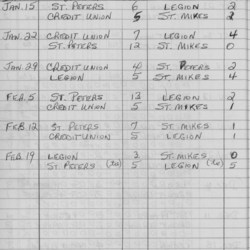 JAN. 15 ST. PETERS 6 LEGION 2
CREDIT UNION 5 ST. MIKES 2
JAN. 22 CREDIT UNION 7 LEGION 4
ST. PETERS 12 ST. MIKES 0
JAN. 29 CREDIT UNION 4 ST PETERS 2
LEGION 5 ST. MIKES 4
FEB. 5 ST. PETERS 12 LEGION 2
CREDIT UNION 5 ST. MIKES 1
FEB 12 ST. PETERS 7 ST. MIKES 1
CREDIT UNION 5 LEGION 1
FEB 19 LEGION ST. MIKES 0
ST. PETERS 5 LEGION 5